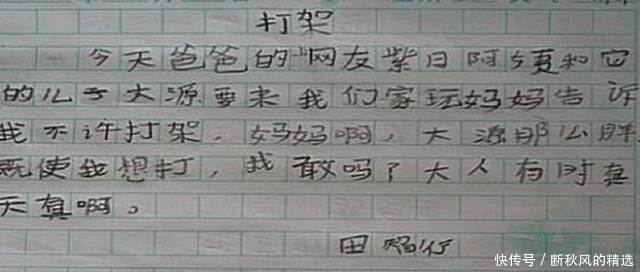 打架
今天爸爸的"网友紫日阿姨和它
的儿子大源要来我们家玩妈妈告诉
我不许打架。妈妈啊，大源那么胖
既使我想打，我敢吗？大人有时真
天真啊。
田
快传号 / 断秋风的精选